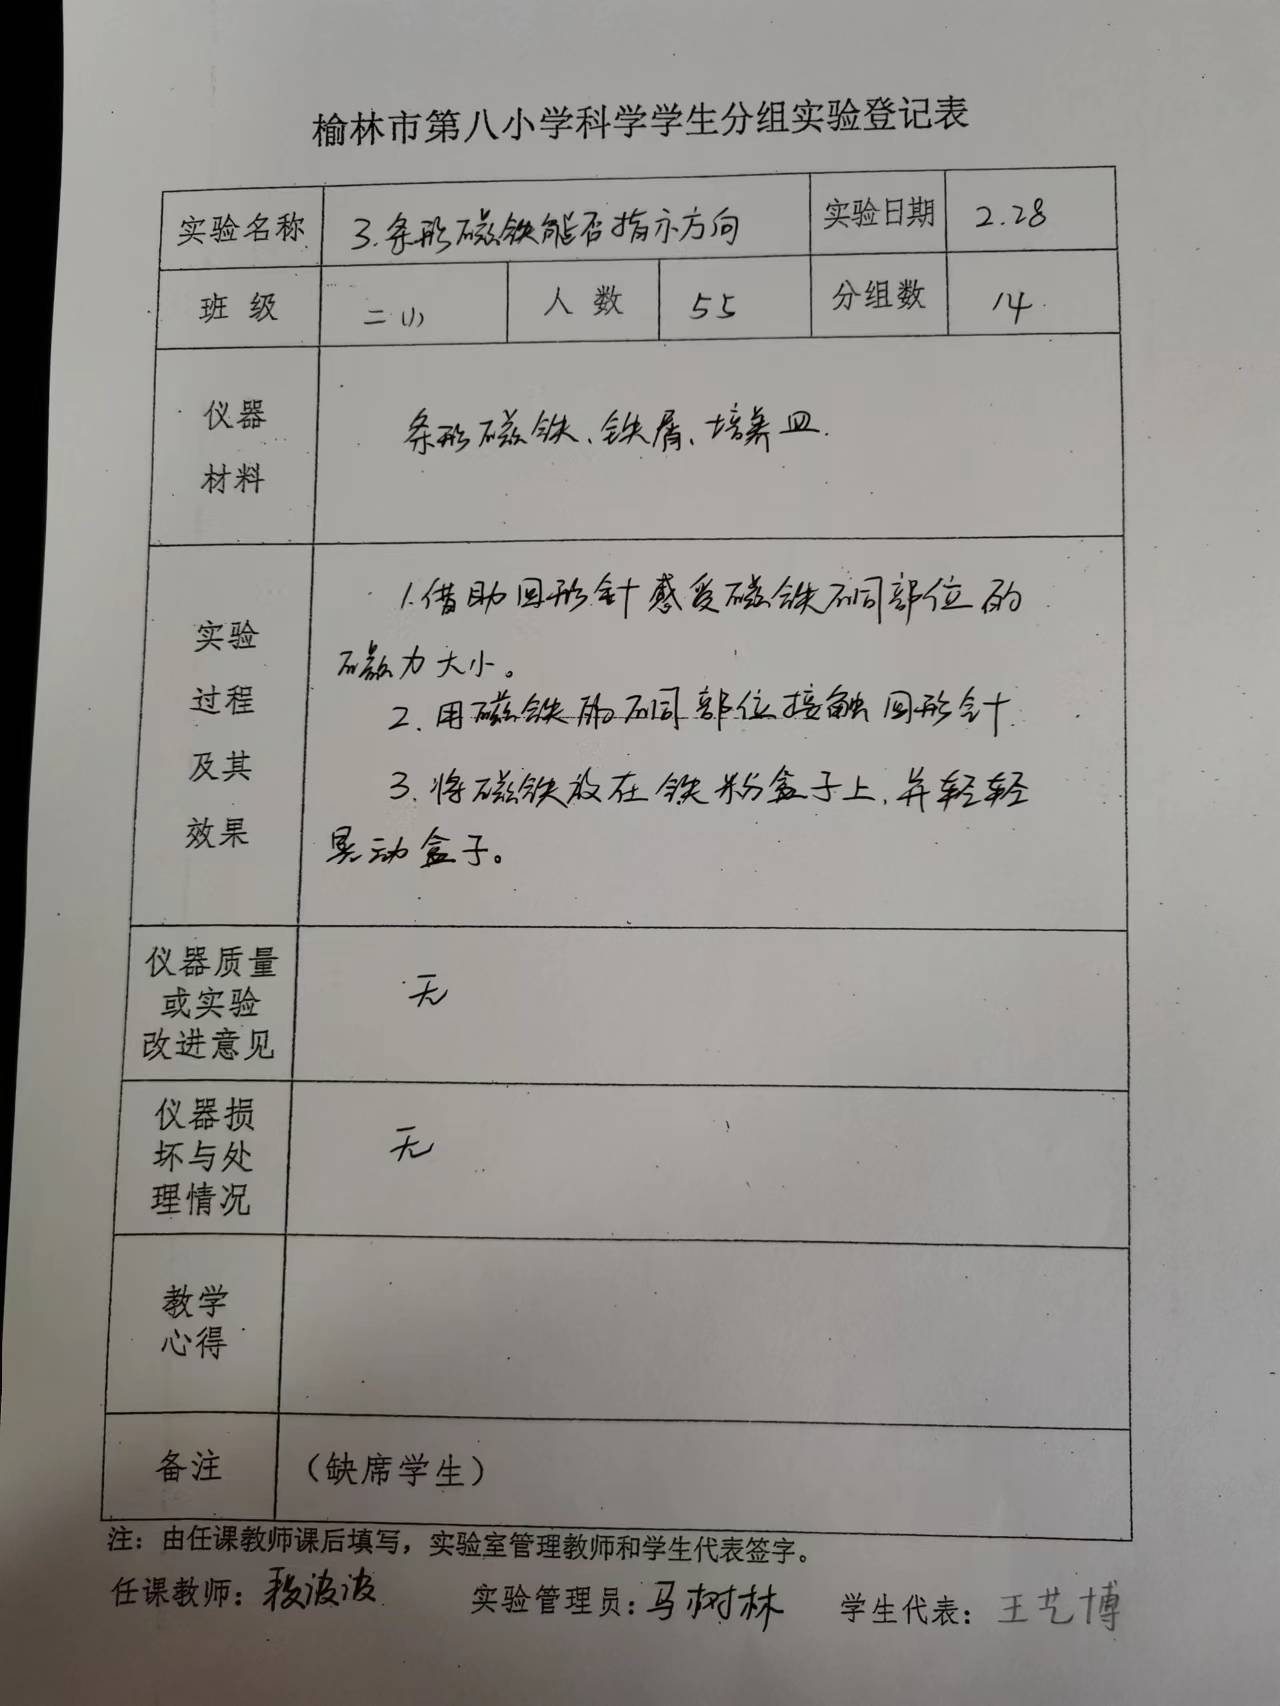 榆林市第八小学科学学生分组实验登记表
实验名称 3.条形磁铁能否指示方向 实验日期 2.28
班 级 二(1) 人 数 55 分组数 14
仪器
材料
条形磁铁、铁屑、培养皿.
实验
过程
及其
效果
1.借助回形针感受磁铁不同部位的
磁力大小。
2.用磁铁的不同部位接触回形针
3.将磁铁放在铁粉盒子上,并轻轻
晃动盒子。
仪器质量
或实验
改进意见
无
仪器损
坏与处
理情况
无
教学
心得
备注 (缺席学生)
注：由任课教师课后填写，实验室管理教师和学生代表签字。
任课教师：段波波 实验管理员：马树林 学生代表：王艺博